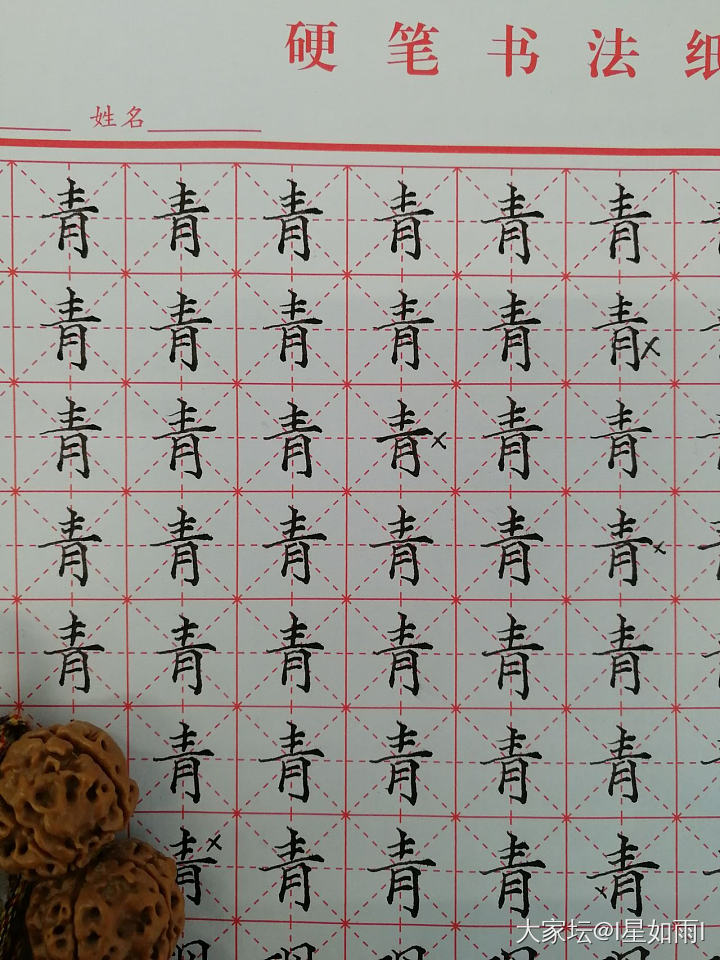 硬笔书法纸
姓名
青青青青青青
青青青青青青×
青青青青×青青
青青青青青青×
青青青青青青
青青青青青
青×青青青×青
大家坛@l星如雨l